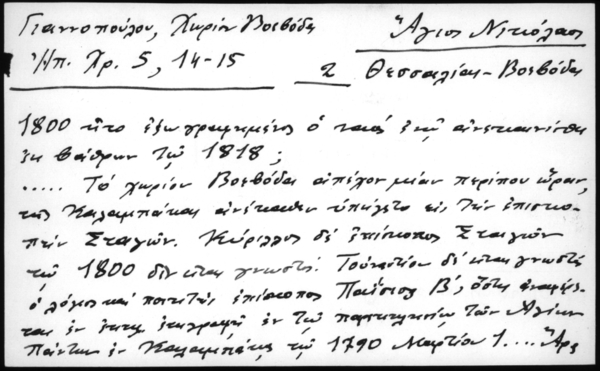 Γιαννοπούλου, Χωρίον Βοεβόδα
Ἠπ. Χρ. 5, 14-15
Ἅγιος Νικόλαος
2 Θεσσαλίας - Βοεβόδα
1800 ἦτο ἐζωγραφημένος ὁ ναός ἐνῷ ἀνεκαινίσθη
ἐκ βάθρων τῷ 1818;
..... Τό χωρίον Βοεβόδα ἀπέχον μίαν περίπου ὥραν,
τῆς Καλαμπάκας ἀνέκαθεν ὑπήγετο εἰς τήν ἐπισκο-
πήν Σταγῶν. Κύριλλος δέ ἐπίσκοπος Σταγῶν
τῷ 1800 δέν εἶναι γνωστός. Τοὐναντίον δέ εἶναι γνωστός
ὁ λόγιος καί ποιητής ἐπίσκοπος Παΐσιος Β', ὅστις ἀναφέρε-
ται ἐν ἐπιγραφῇ ἐν τῷ παρεκκλησίῳ τῶν Ἁγίων
Πάντων ἐν Καλαμπάκᾳ τῷ 1790 Μαρτίου 1....